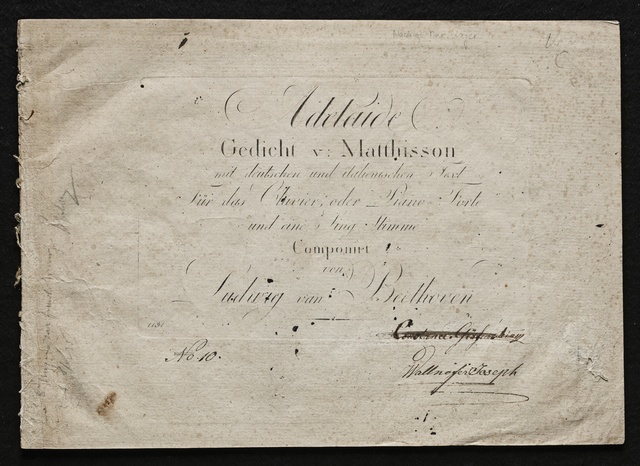 Adelaide
Gedicht v: Matthisson
mit deutschen und italienischen Text
Für das Clavier; oder Piano Forte
und eine Sing Stimme
Componirt
von
Ludwig van Beethoven
No 10.
Wallnöfer Joseph